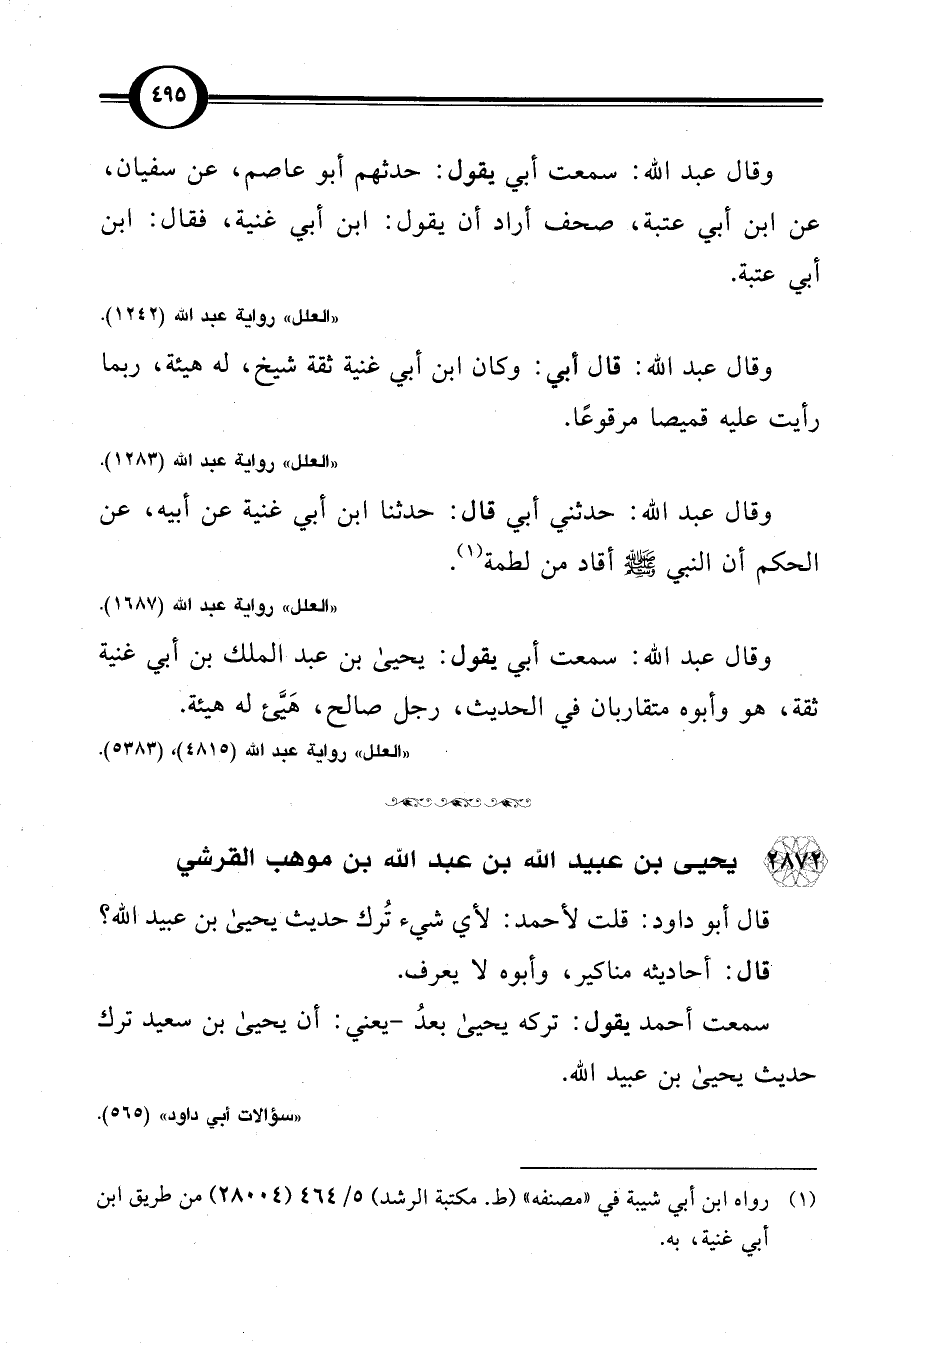 ٤٩٥
وقال عبد الله: سمعت أبي يقول: حدثهم أبو عاصم، عن سفيان،
عن ابن أبي عتبة، صحف أراد أن يقول: ابن أبي غنية، فقال: ابن
أبي عتبة.
«العلل» رواية عبد الله (١٢٤٢).
وقال عبد الله: قال أبي: وكان ابن أبي غنية ثقة شيخ، له هيئة، ربما
رأيت عليه قميصا مرقوعًا.
«العلل» رواية عبد الله (١٢٨٣).
وقال عبد الله: حدثني أبي قال: حدثنا ابن أبي غنية عن أبيه، عن
الحكم أن النبي ﷺ أقاد من لطمة(١).
«العلل» رواية عبد الله (١٦٨٧).
وقال عبد الله: سمعت أبي يقول: يحيىٰ بن عبد الملك بن أبي غنية
ثقة، هو وأبوه متقاربان في الحديث، رجل صالح، هَيَّئ له هيئة.
«العلل» رواية عبد الله (٤٨١٥)، (٥٣٨٣).
٢٨٧٢ يحيى بن عبيد الله بن عبد الله بن موهب القرشي
قال أبو داود: قلت لأحمد: لأي شيء تُرك حديث يحيىٰ بن عبيد الله؟
قال: أحاديثه مناكير، وأبوه لا يعرف.
سمعت أحمد يقول: تركه يحيىٰ بعدُ -يعني: أن يحيىٰ بن سعيد ترك
حديث يحيىٰ بن عبيد الله.
«سؤالات أبي داود» (٥٦٥).
(١) رواه ابن أبي شيبة في «مصنفه» (ط. مكتبة الرشد) ٥/ ٤٦٤ (٢٨٠٠٤) من طريق ابن
أبي غنية، به.